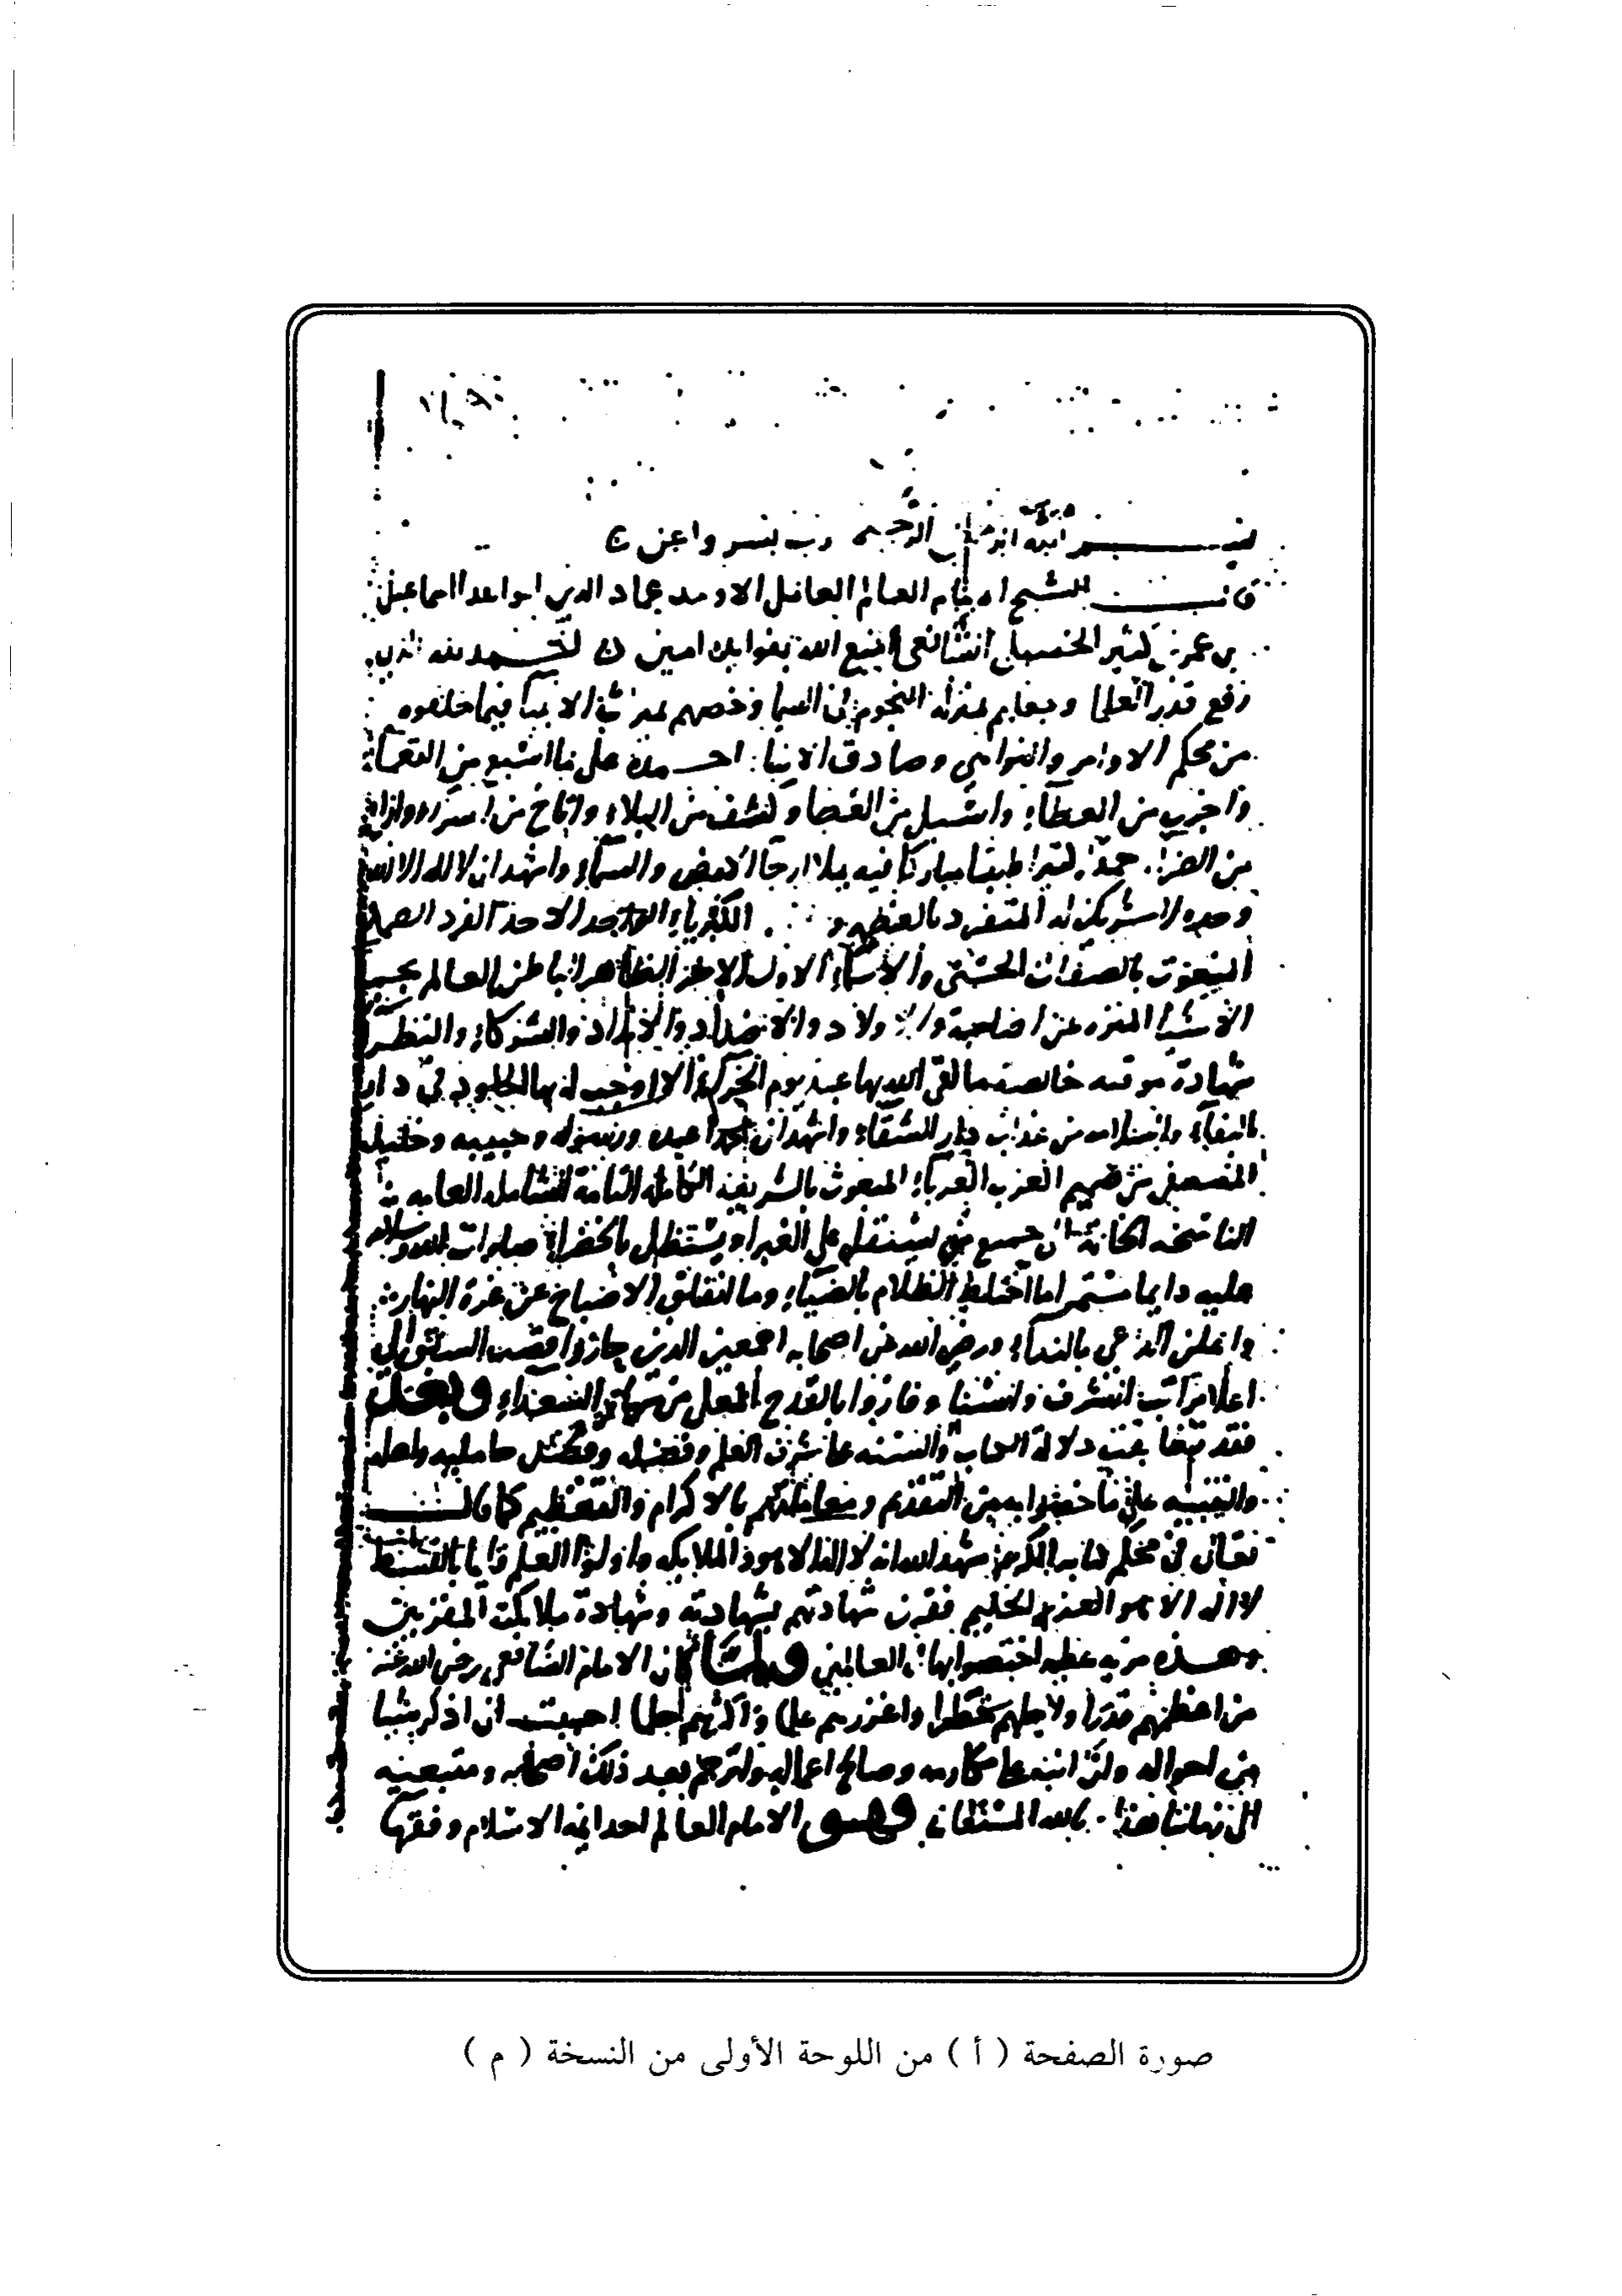 بسم الله الرحمن الرحيم رب يسر واعن
قال الشيخ الامام العالم العامل الاوحد عماد الدين ابو الفدا اسماعيل
بن عمر بن كثير الشافعي امتع الله بفوايده امين الحمد لله الذي
رفع قدر العلما وجعلهم بمنزلة النجوم في السما وخصهم بميراث الانبيا فيما خلفوه
من محكم الاوامر والنواهي وصادق الانبا احمده على ما اسبغ من النعما
واجزل من العطاء واسبل من الغطا وكشف من البلاء
من الضراء حمدا كثيرا طيبا مباركا فيه يملا ارجا الارض والسماء واشهد ان لا اله الا الله
وحده لا شريك له المتفرد بالعظمة و الكبرياء الواحد الاحد الفرد الصمد
المنعوت بالصفات الحسنى والاسماء الاول الاخر الظاهر الباطن العالم بجميع
الاشيا المنزه عن الصاحبة والاولاد والاضداد والانداد والشركاء والنظراء
شهادة موقنه خالصة ما لقي الله بها عبد يوم الا اوجب له بها الخلود في دار
البقاء والسلامه من عذاب دار الشقاء واشهد ان محمدا عبده ورسوله وحبيبه وخليله
المصطفى من صميم العرب العرباء المبعوث بالشريعة الكاملة التامة الشاملة العامه
الناسخه الى جميع من يستقل على الغبرا ويستظل بالخضراء صلوات الله وسلامه
عليه دايما مستمرا ما اختلط الظلام بالضياء وما انفلق الاصباح عن غرة النهار
واعلن الداعي بالنداء ورضي الله عن اصحابه اجمعين الذين حازوا قصب السبق الى
اعلا مراتب الشرف والسنا وفازوا بالقدح المعلى من السعداء وبعد
فقد دلالة الكتاب والسنه على شرف العلم وفضله وفضل حامليه واهله
والتنبيه على ما خصوا به من التقديم ومعاملتهم بالاكرام والتعظيم كما قال
تعالى في محكم كتابه الكريم شهد الله انه لا اله الا هو والملايكه واولوا العلم قايما بالقسط
لا اله الا هو العزيز الحكيم فقرن شهادتهم بشهادته وشهادة ملايكته المقربين
وهذه مزيه عظيمة اختصوا بها في العالمين ولما كان الامام الشافعي رضي الله عنه
من اعظمهم قدرا واجلهم خطرا واغزرهم علما احببت ان اذكر شيئا
من احواله وان انبه على مكارمه وصالح اعماله ولترجم بعد ذلك اصحابه ومتبعيه
الى زماننا هذا بالله المستعان وهو الامام العالم احد ايمة الاسلام وفقهاء
صورة الصفحة ( أ ) من اللوحة الأولى من النسخة ( م )